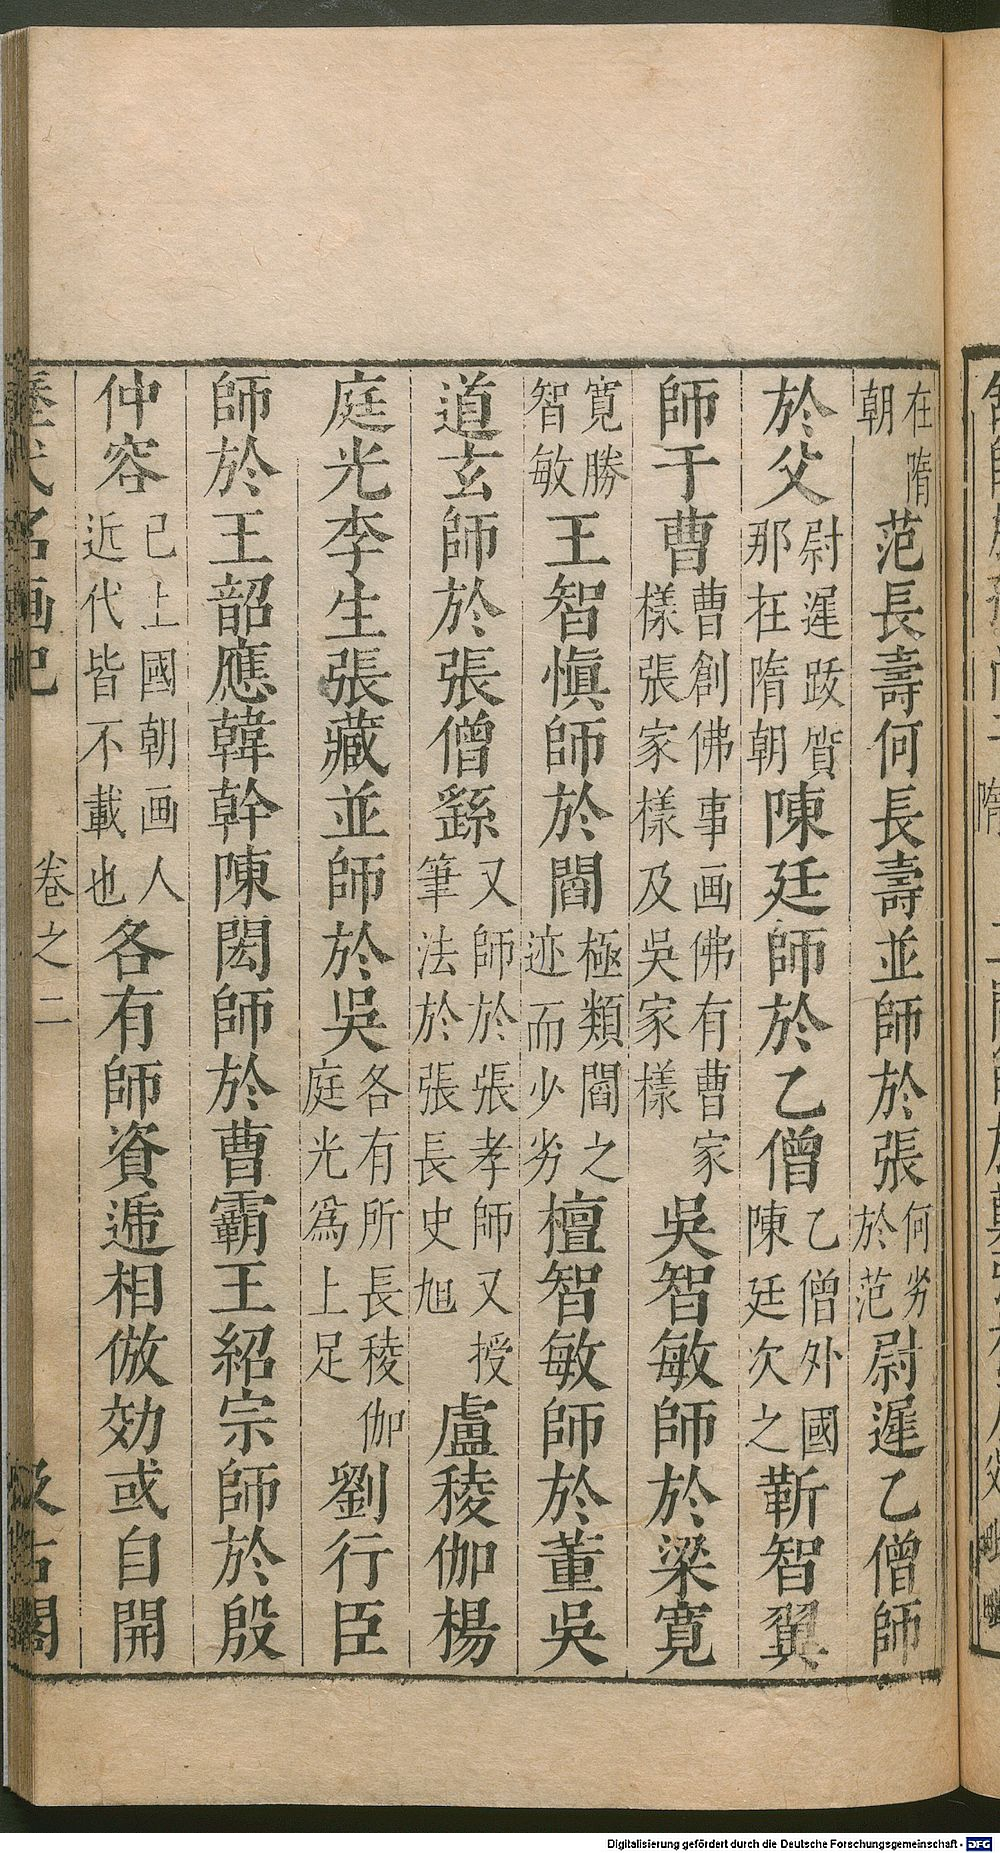 在隋朝范長壽何長壽並師於張何劣於范尉遲乙僧師
於父尉遲跋質那在隋朝陳廷師於乙僧乙僧外國陳廷次之靳智翼
師于曹曹創佛事画佛有曹家樣張家樣及吳家樣吳智敏師於梁寛
寛勝智敏王智愼師於閻極類閻之迹而少劣檀智敏師於董吳
道玄師於張僧繇又師於張孝師又授筆法於張長史旭盧稜伽楊
庭光李生張藏並師於吳各有所長稜伽庭光爲上足劉行臣
師於王韶應韓幹陳閎師於曹霸王紹宗師於殷
仲容已上國朝画人近代皆不載也各有師資遞相倣効或自開
歷代名画記 卷之二 汲古閣
Digitalisierung gefördert durch die Deutsche Forschungsgemeinschaft - DFG